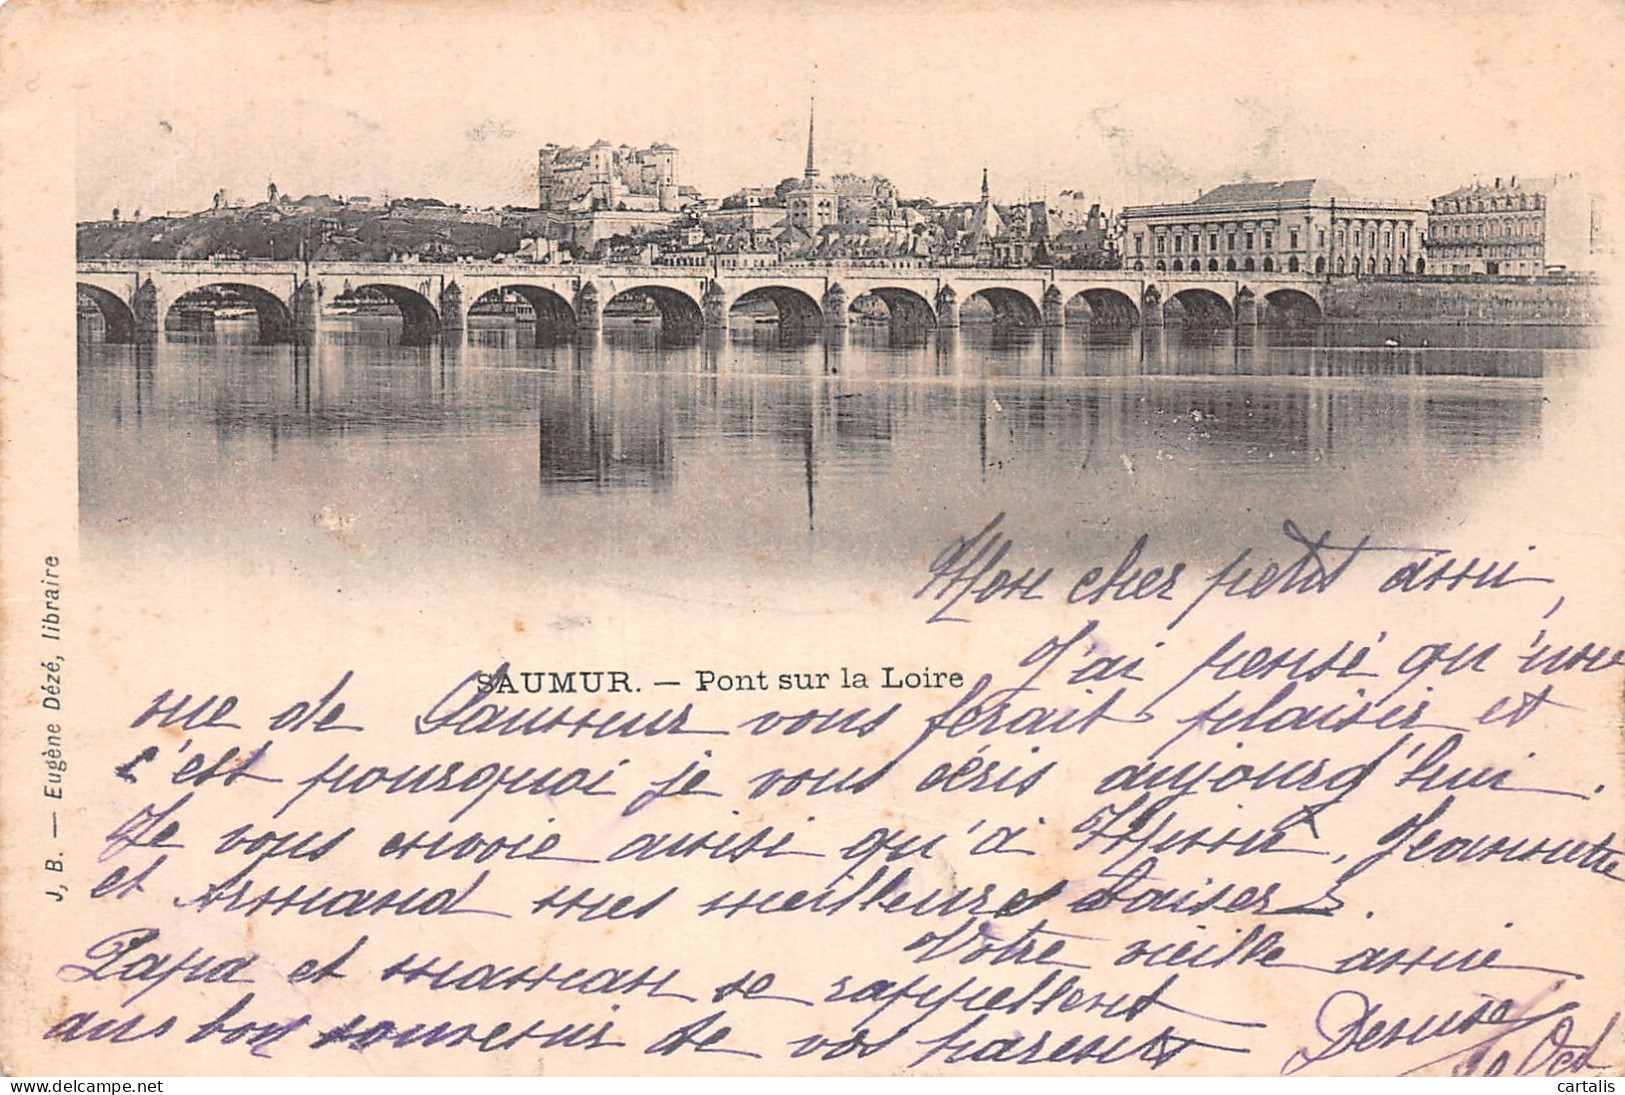 Mon cher petit ami,
J'ai pensé qu'une
SAUMUR. — Pont sur la Loire
vue de Saumur vous ferait plaisir et
c'est pourquoi je vous écris aujourd'hui.
Je vous envoie ainsi qu'à Mimi, Jeannette
et Armand mes meilleurs baisers.
Votre vieille amie
Papa et maman se rappellent
au bon souvenir de vos parents Denise
Oct
J. B. — Eugène Dézé, libraire
cartalis